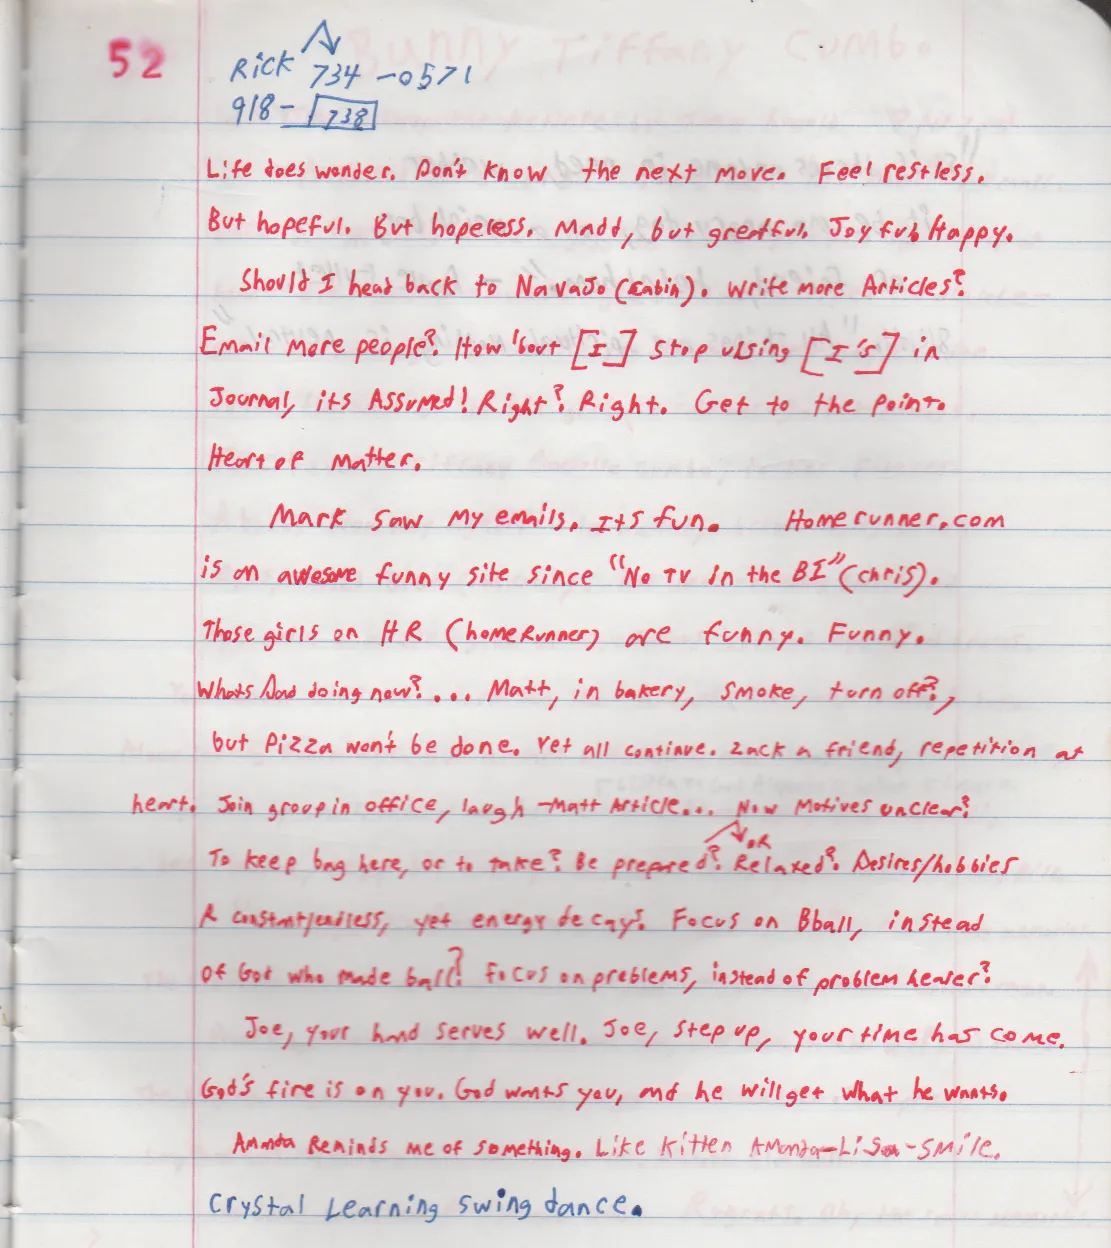 52
Rick 734-0571
918- 738
Life does wonder. Don't know the next move. Feel restless.
But hopeful. But hopeless. Madd, but greatful. Joyful. Happy.
Should I head back to Navajo (cabin). Write more Articles?
Email more people? How 'bout [I] stop using [I's] in
Journal, its Assumed! Right? Right. Get to the point.
Heart of matter.
Mark saw my emails. Its fun. Homerunner.com
is an awesome funny site since "No TV in the BI" (chris).
Those girls on HR (homeRunner) are funny. Funny.
Whats Dad doing now?... Matt, in bakery, smoke, turn off?,
but Pizza won't be done. Yet all continue. Zack a friend, repetition at
heart. Join group in office, laugh -Matt Article... Now Motives unclear?
To keep bag here, or to take? Be prepared? or Relaxed? Desires/hobbies
R constant/endless, yet energy decays. Focus on Bball, instead
of God who made ball? Focus on problems, instead of problem healer?
Joe, your hand serves well. Joe, step up, your time has come.
God's fire is on you. God wants you, and he will get what he wants.
Amanda Reminds me of something. Like Kitten Amanda-Lisa-smile.
Crystal Learning swing dance.